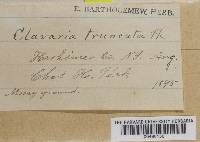 E. BARTHOLOMEW, HERB.
Clavaria truncata
Herkimer Co. N.Y. Aug.
Chas. H. Peck
1895
Mossy ground.